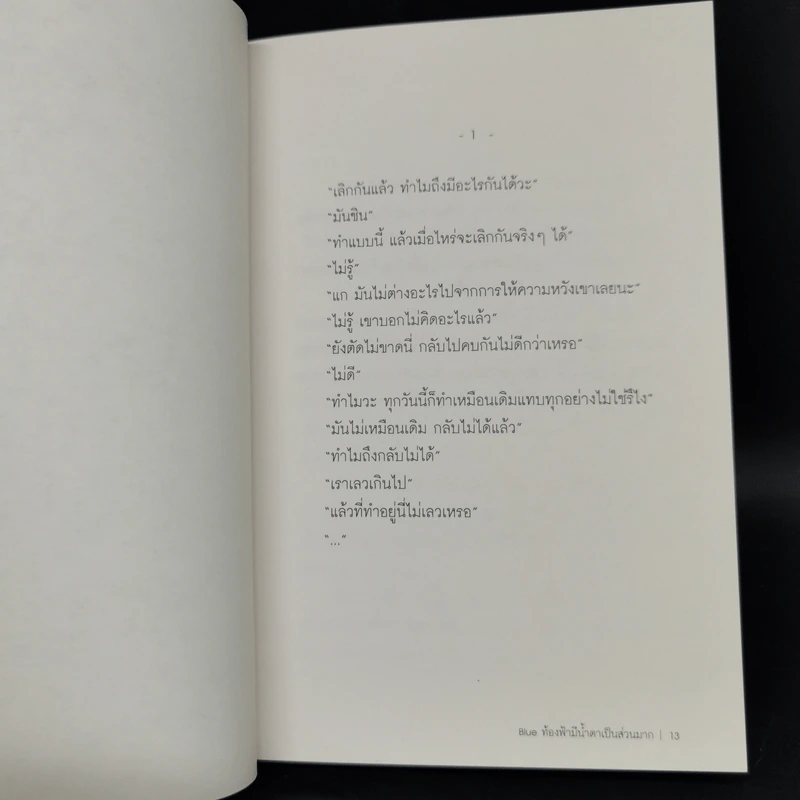 - 1 -
“เลิกกันแล้ว ทำไมถึงมีอะไรกันได้วะ”
“มันชิน”
“ทำแบบนี้ แล้วเมื่อไหร่จะเลิกกันจริงๆ ได้”
“ไม่รู้”
“แก มันไม่ต่างอะไรไปจากการให้ความหวังเขาเลยนะ”
“ไม่รู้ เขาบอกไม่คิดอะไรแล้ว”
“ยังตัดไม่ขาดนี่ กลับไปคบกันไม่ดีกว่าเหรอ”
“ไม่ดี”
“ทำไมวะ ทุกวันนี้ก็ทำเหมือนเดิมแทบทุกอย่างไม่ใช่รึไง”
“มันไม่เหมือนเดิม กลับไม่ได้แล้ว”
“ทำไมถึงกลับไม่ได้”
“เราเลวเกินไป”
“แล้วที่ทำอยู่นี่ไม่เลวเหรอ”
“...”
Blue ท้องฟ้ามีน้ำตาเป็นส่วนมาก | 13